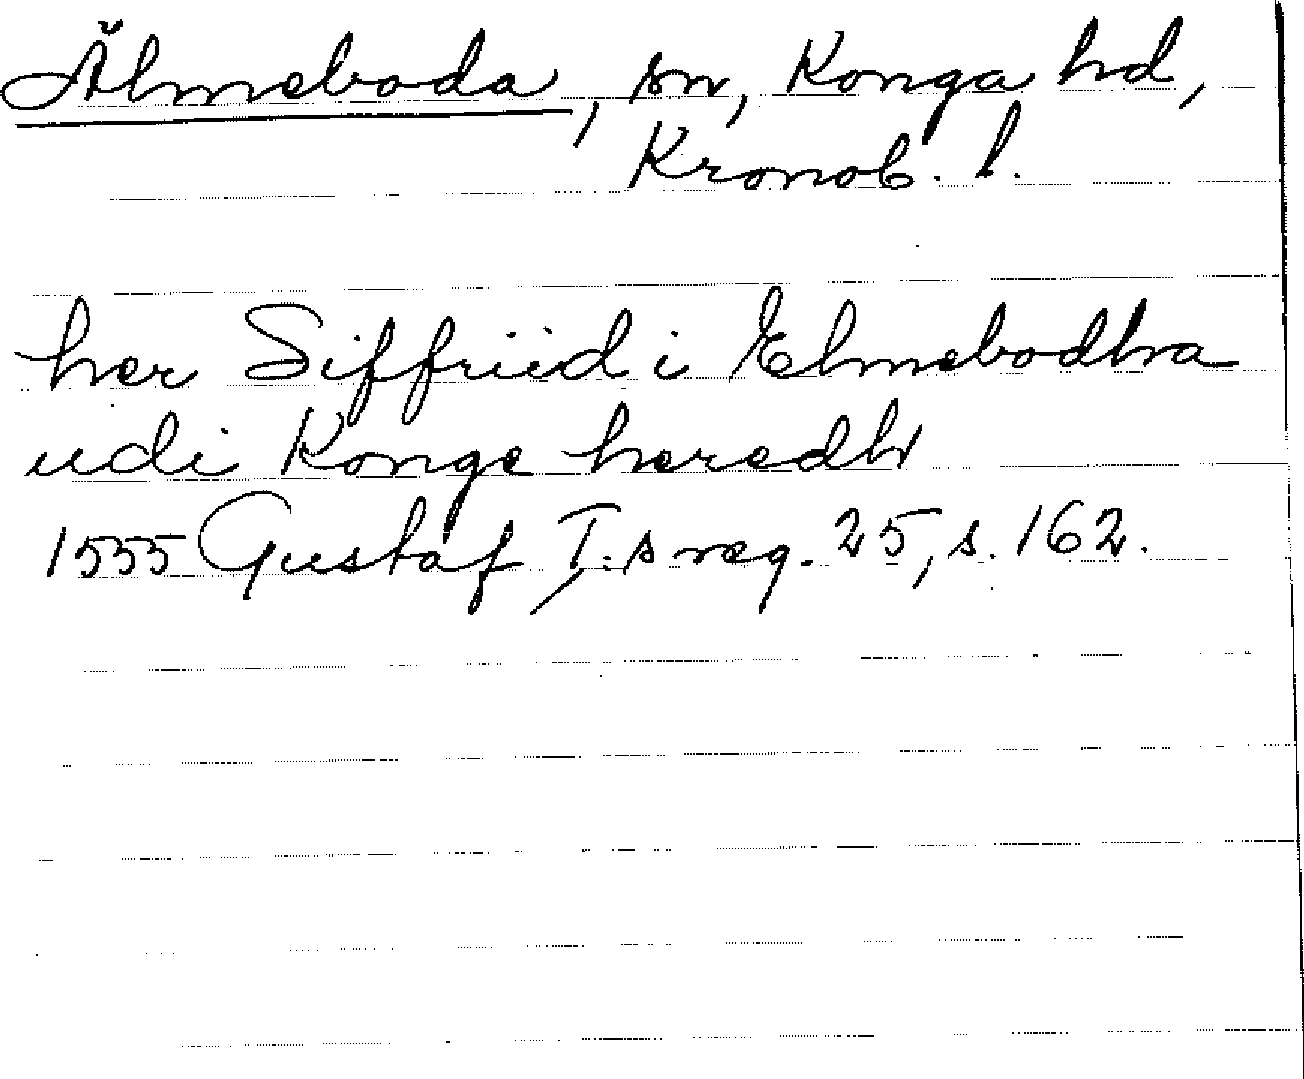 Älmeboda, sn, Konga hd,
Kronob. l.
her Siffriid i Elmebodha
udi Konge heredh
1555 Gustaf I:s reg. 25, s. 162.